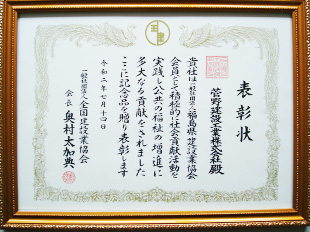 表彰状
菅野建設工業株式会社殿
貴社は一般社団法人福島県建設業協会
会員として積極的に社会貢献活動を
実践し公共の福祉の増進に
多大なる貢献をされました
ここに記念品を贈り表彰します
令和二年七月十四日
一般社団法人全国建設業協会
会長 奥村太加典